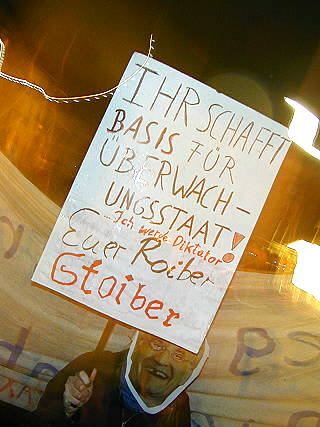 IHR SCHAFFT
BASIS FÜR
ÜBERWACH-
UNGSSTAAT!
...Ich werde Diktator!
Euer Roiber
Stoiber